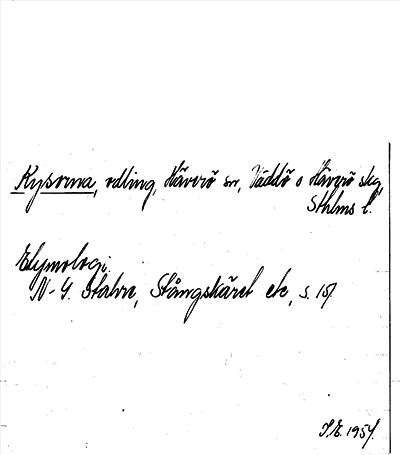 Kysorna, odling, Hävrö sn, Väddö o Hävrö skg,
Sthlms l.
Etymologi.
N-G. Stahre, Stångskäret etc, s. 151
S.E. 1954.